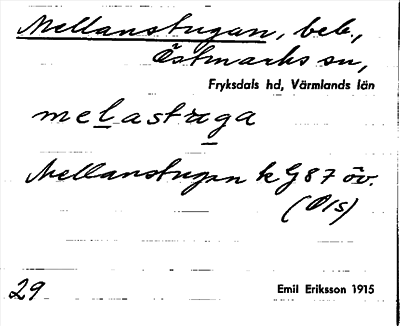 Mellanstugan, beb.,
Östmarks sn,
Fryksdals hd, Värmlands län
melastuga
Mellanstugan k G87 öv.
(Ols)
29 Emil Eriksson 1915